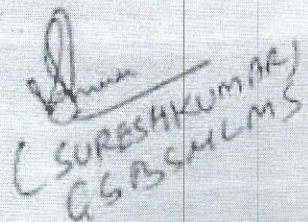 ( SURESHKUMAR)
GSBSMLMS